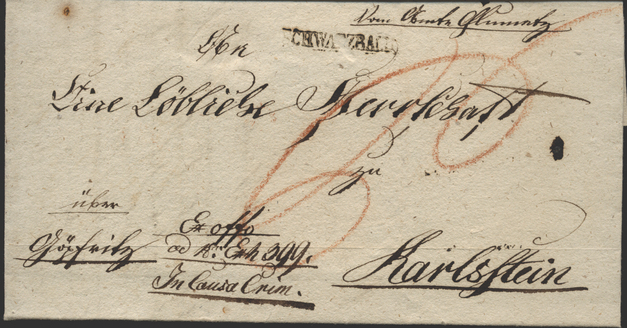 Vom Amte Illmanz
SCHWARZBACH
An
Eine Löbliche Herrschaft
zu
über
Göpfritz
Ex offo
ad N: Exh 399.
In Causa Crim.
Karlsstein